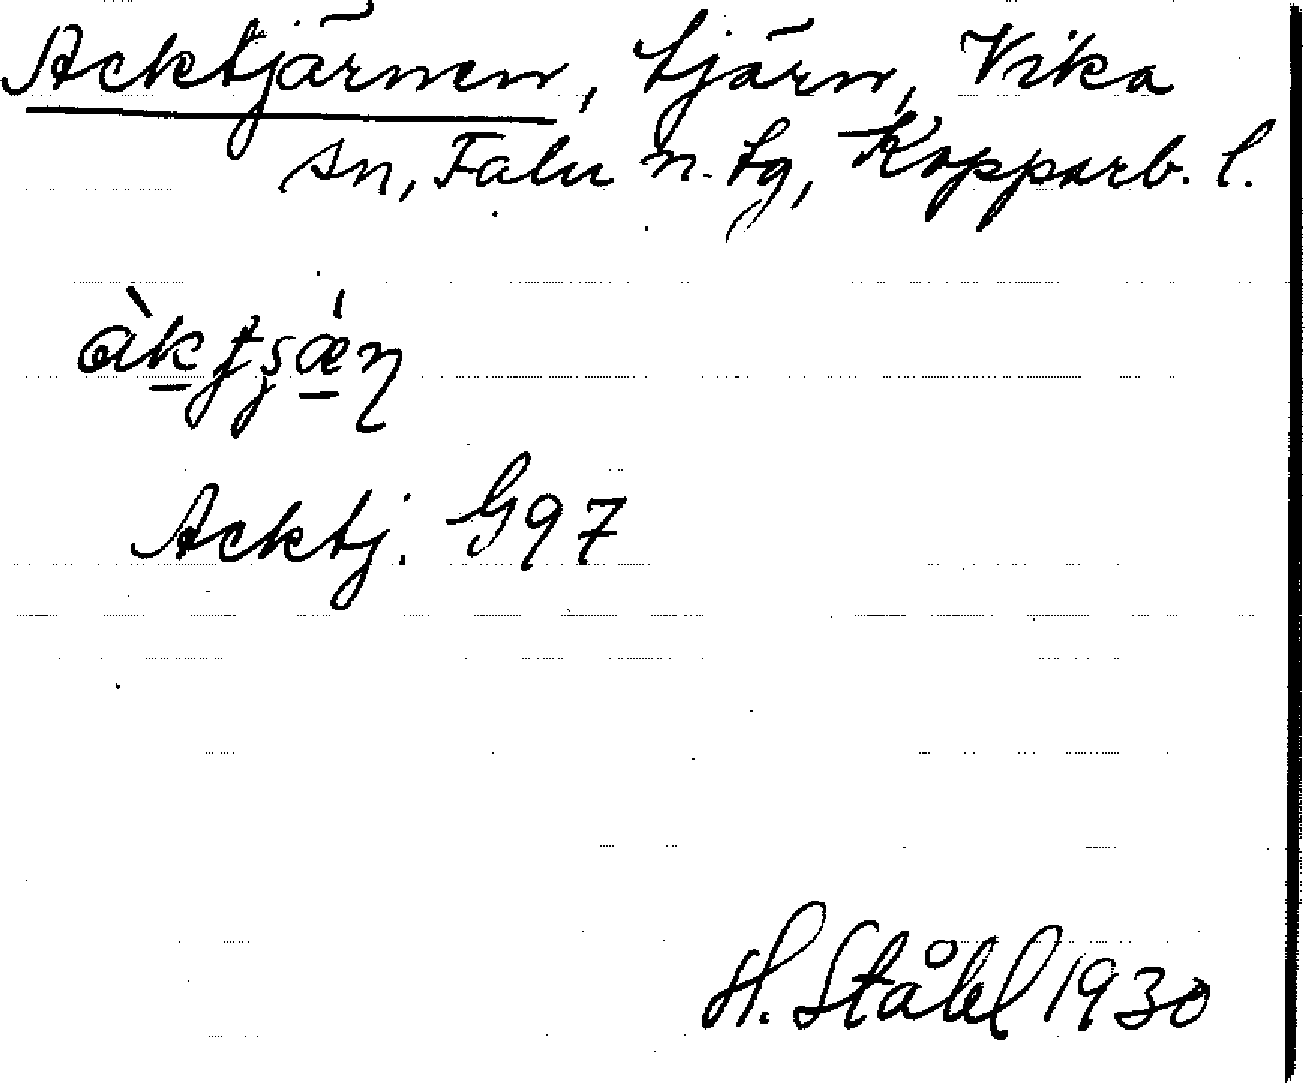 Acktjärnen, tjärn, Vika
sn, Falu n. tg, Kopparb. l.
Acktj. G97
H. Ståhl 1930